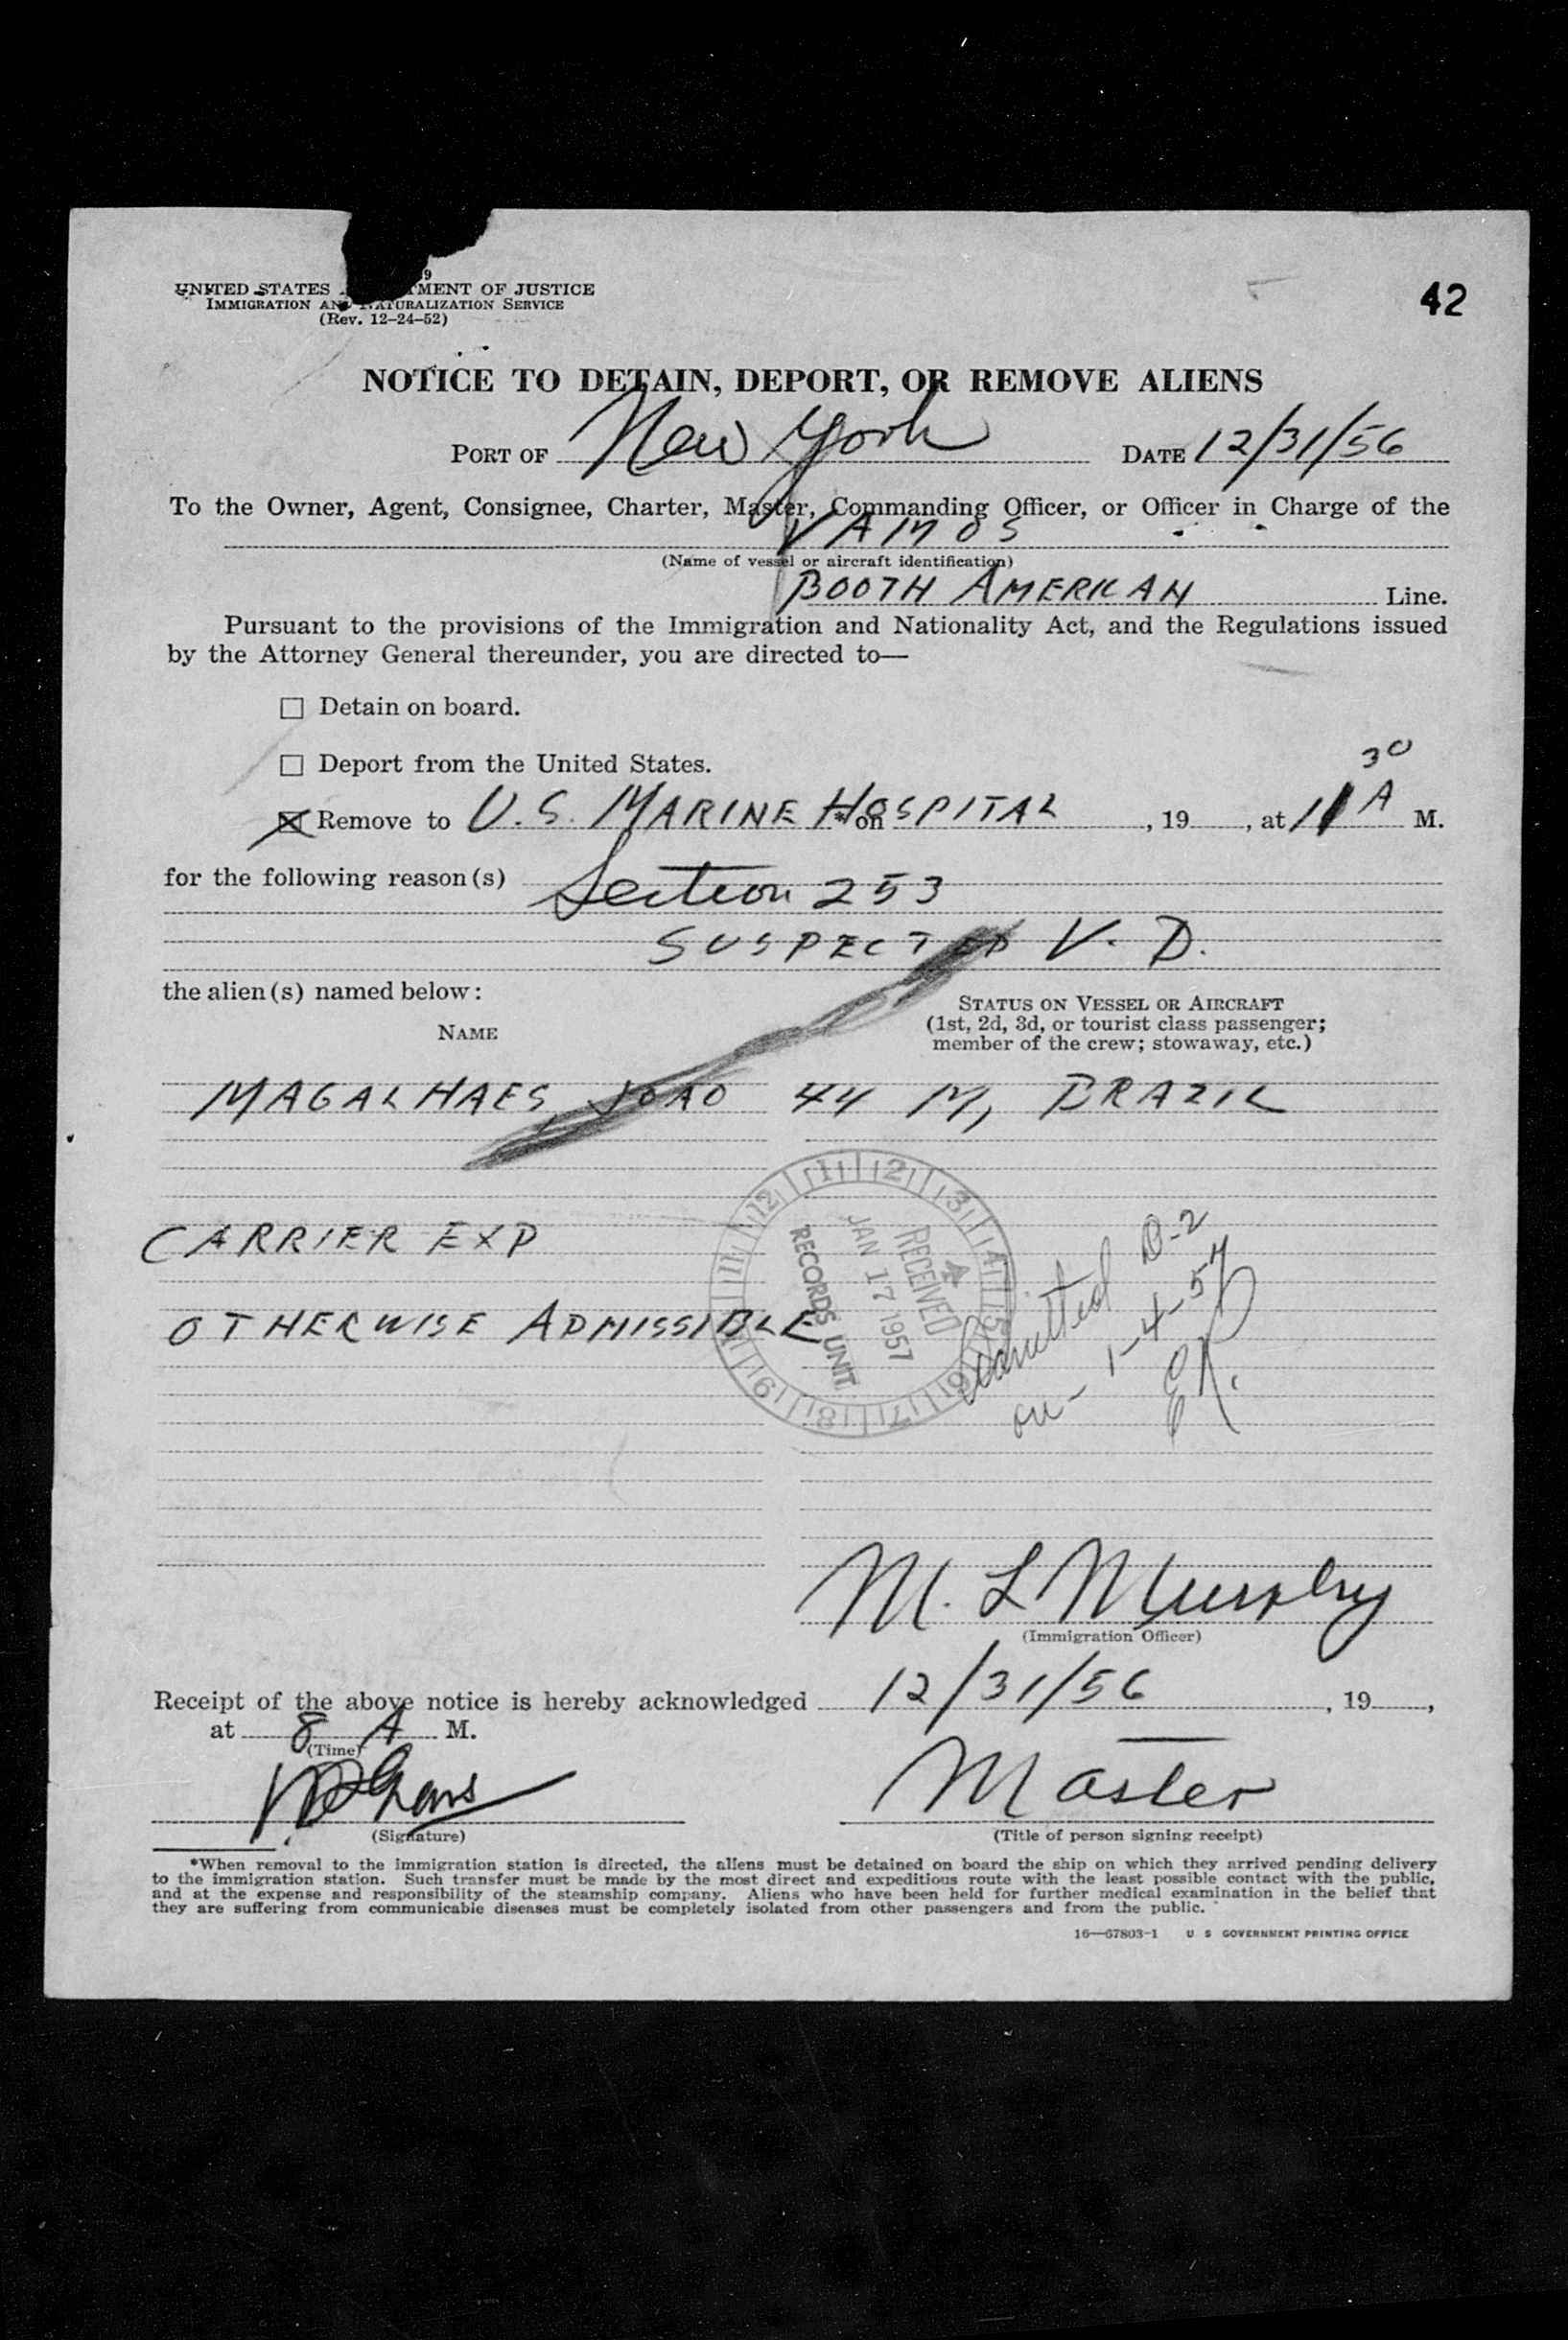 9
UNITED STATES MENT OF JUSTICE
IMMIGRATION AND NATURALIZATION SERVICE
(Rev. 12-24-52)
42
NOTICE TO DETAIN, DEPORT, OR REMOVE ALIENS
PORT OF New York DATE 12/31/56
To the Owner, Agent, Consignee, Charter, Master, Commanding Officer, or Officer in Charge of the
VAMOS
(Name of vessel or aircraft identification)
BOOTH AMERICAN Line.
Pursuant to the provisions of the Immigration and Nationality Act, and the Regulations issued
by the Attorney General thereunder, you are directed to—
Detain on board.
Deport from the United States.
Remove to U.S. MARINE HOSPITAL *on , 19 , at 11 30 A M.
for the following reason(s) Section 253
SUSPECTED V. D.
the alien(s) named below:
NAME
STATUS ON VESSEL OR AIRCRAFT
(1st, 2d, 3d, or tourist class passenger;
member of the crew; stowaway, etc.)
MAGALHAES, JOAO 44 M, BRAZIL
CARRIER EXP
OTHERWISE ADMISSIBLE
12 1 2 3 4 5 6 7 8 9 11
RECEIVED
JAN 17 1957
RECORDS UNIT
Admitted D-2
on - 1-4-57
M. L Murphy
(Immigration Officer)
Receipt of the above notice is hereby acknowledged 12/31/56 , 19 ,
at 8 A M.
(Time)
Master
(Signature)
(Title of person signing receipt)
*When removal to the immigration station is directed, the aliens must be detained on board the ship on which they arrived pending delivery
to the immigration station. Such transfer must be made by the most direct and expeditious route with the least possible contact with the public,
and at the expense and responsibility of the steamship company. Aliens who have been held for further medical examination in the belief that
they are suffering from communicable diseases must be completely isolated from other passengers and from the public.
16—67803-1 U S GOVERNMENT PRINTING OFFICE